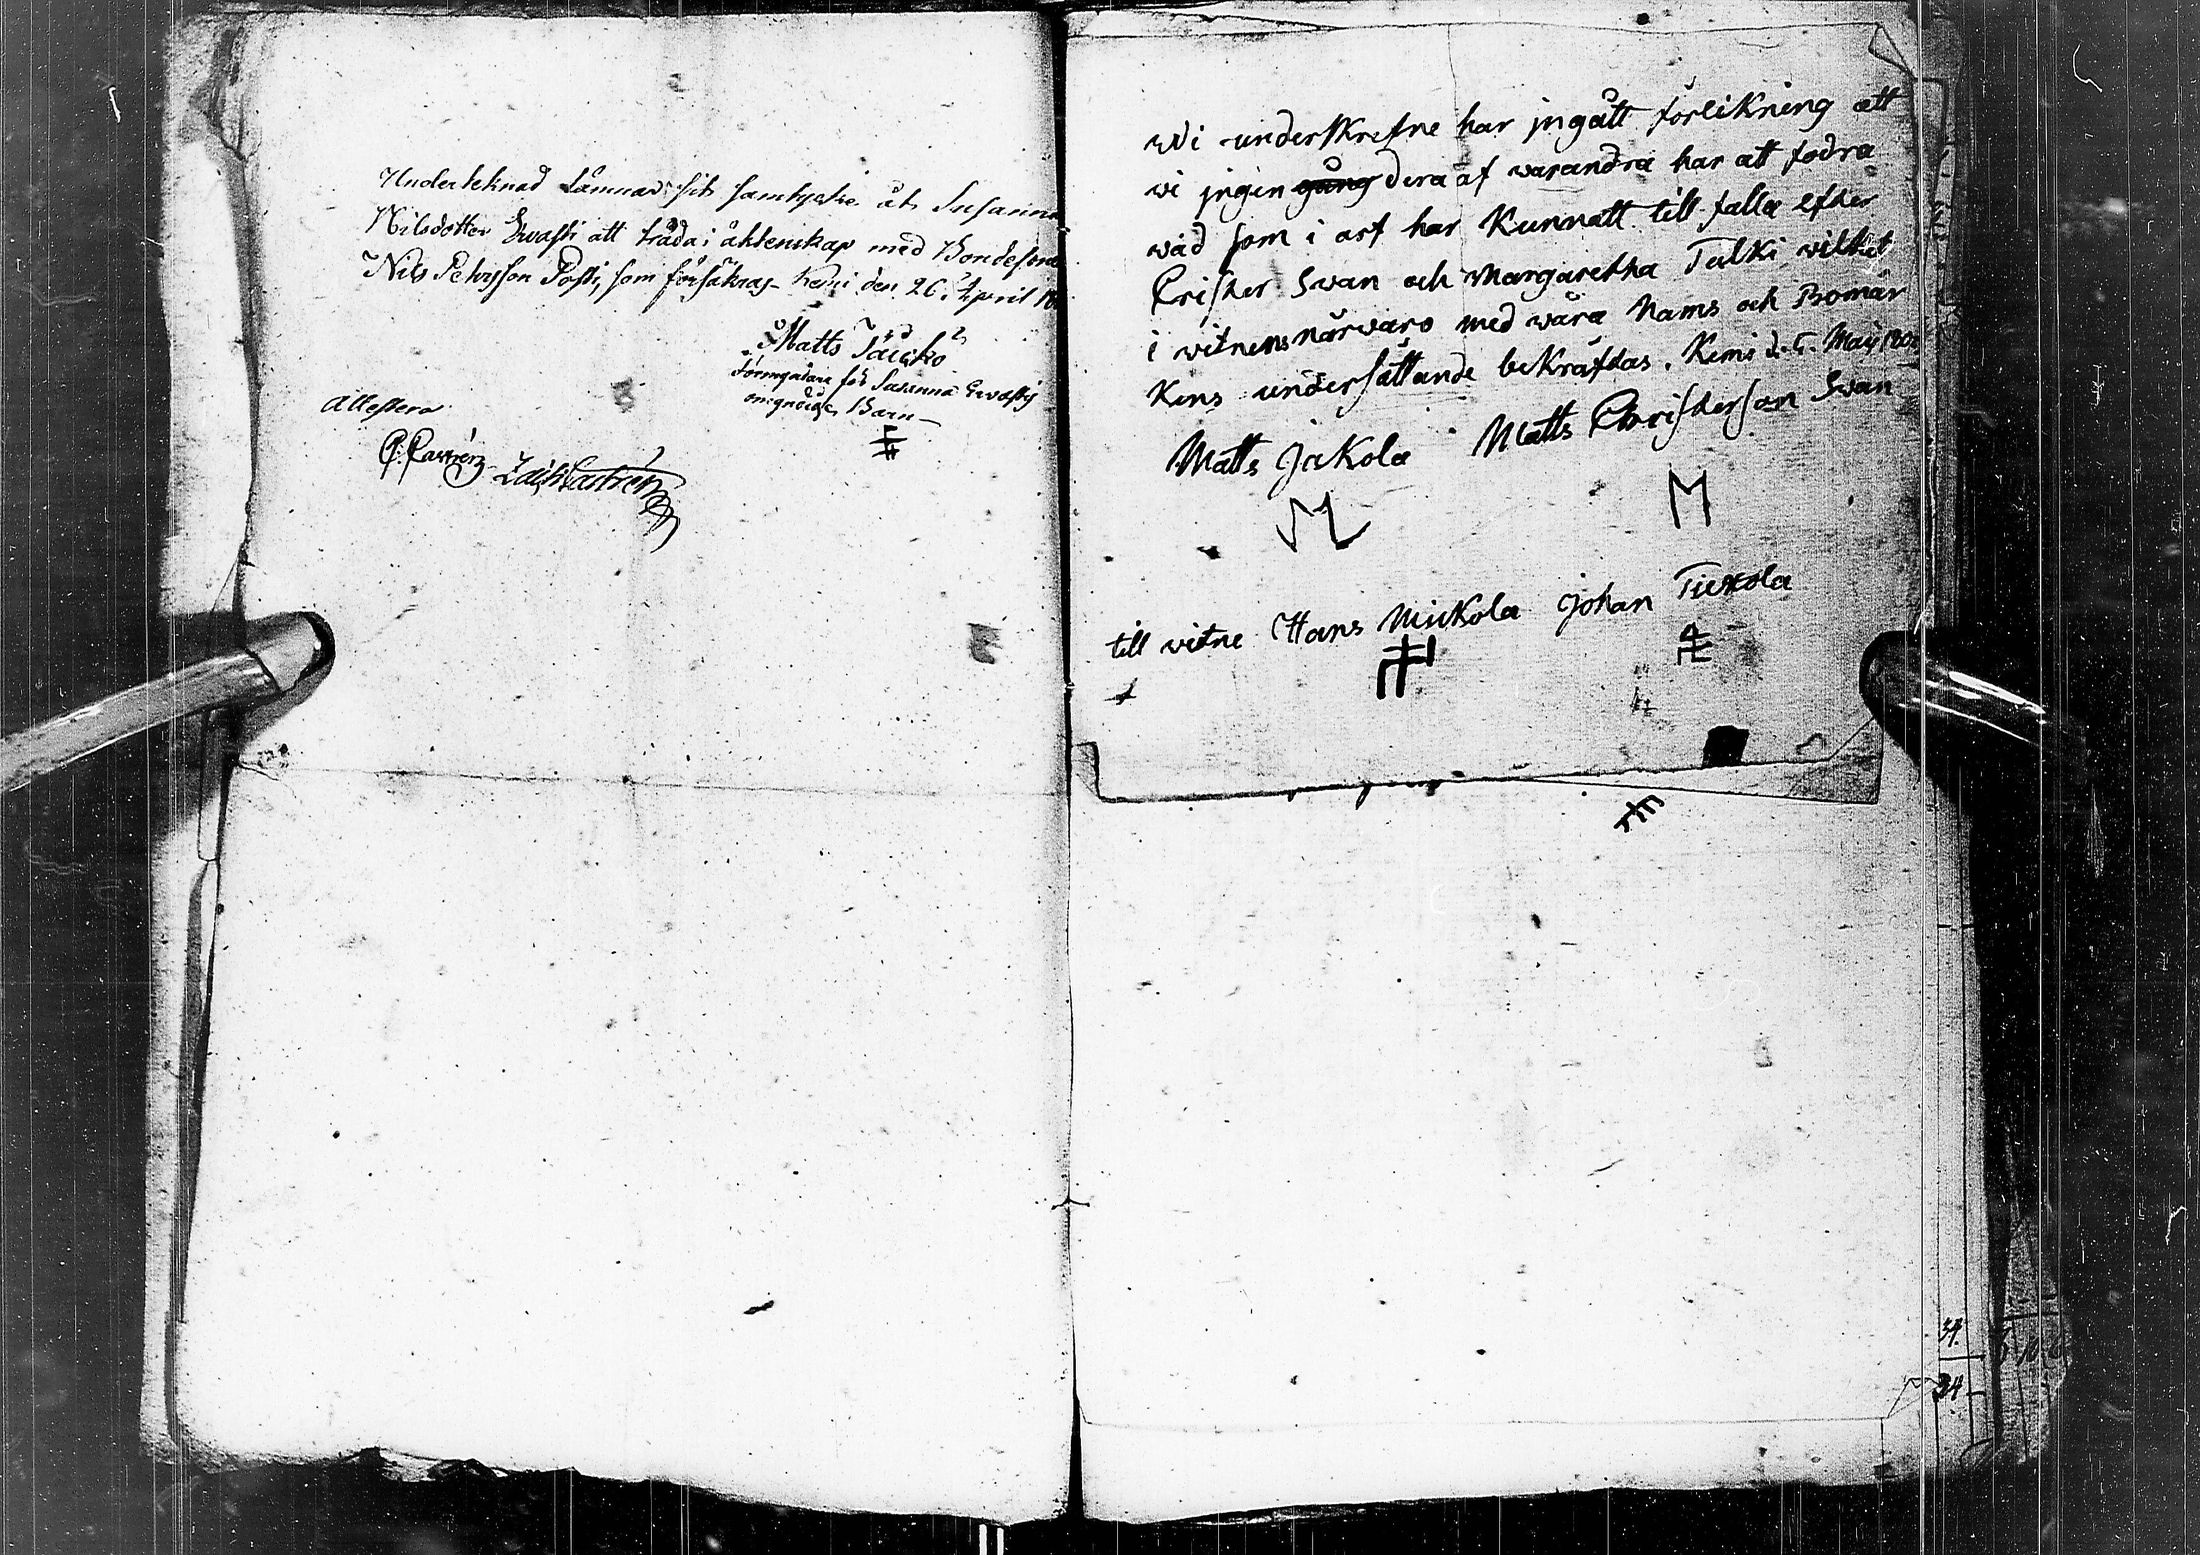 Underteknad lämnar sit samtycke åt Susanna
Nilsdotter Ervasti att träda i äktenskap med Bondesonen
Nils Pehrsson Posti, som försäkras. Kemi den 26 April
Matts
förmyndare för Susanna Ervastis
omyndige Barn
Attestera
C: Castrén Zach Castrén
Wi underskrefne har jngått förlikning att
wi jngen gång dera af warandra har att fodra
wad som i arf har Kunnatt till falla efter
Crister Swan och Margaretha Talki wilket
i witnens närwaro med wåra Nams och Bomär
Kens undersättande bekräfdas. Kemi d. 5. Maij
Matts Jakola Matts Christerson Swan
till witne Hans Mickola Johan
34
34